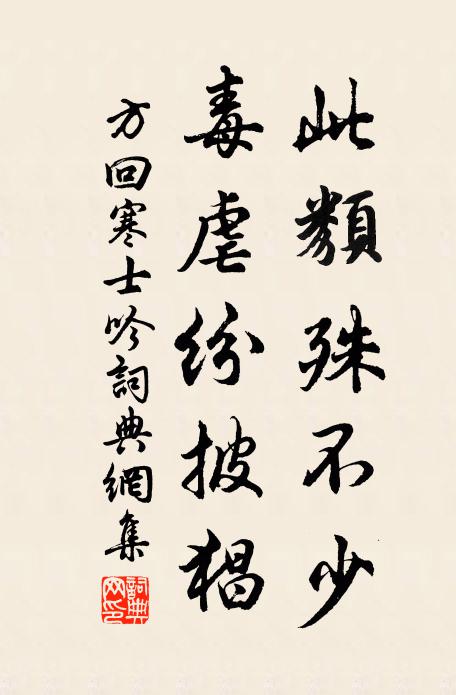 此類殊不少
毒虐紛披猖
方回寒士吟詞典網集
詞典網印